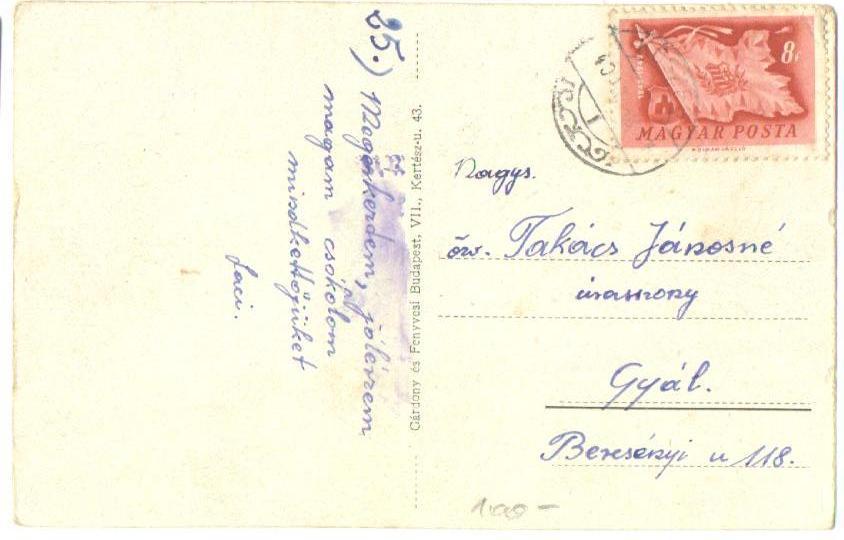 25.)
Megérkezdem, jólérzem
magam csókolom
mindkettőjüket
Laci.
Gárdony és Fenyvesi Budapest, VII., Kertész-u. 43.
8f
MAGYAR POSTA
Nagys.
özv. Takács Jánosné
úrasszony
Gyál.
Bercsényi u 118.